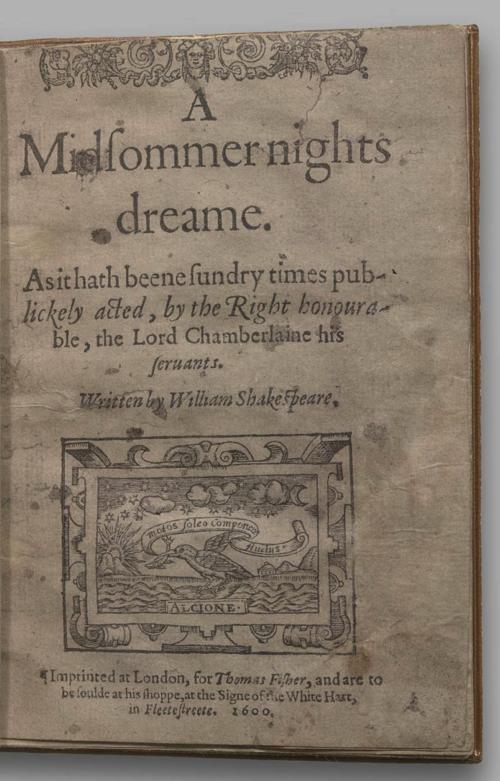 A
Midſommer nights
dreame.
As it hath beene ſundry times pub-
lickely acted, by the Right honoura-
ble, the Lord Chamberlaine his
ſeruants.
Written by William Shakeſpeare.
motos ſoleo Componere
fluctus
ALCIONE.
¶Imprinted at London, for Thomas Fiſher, and are to
be ſoulde at his ſhoppe, at the Signe of the White Hart,
in Fleeteſtreete. 1600.